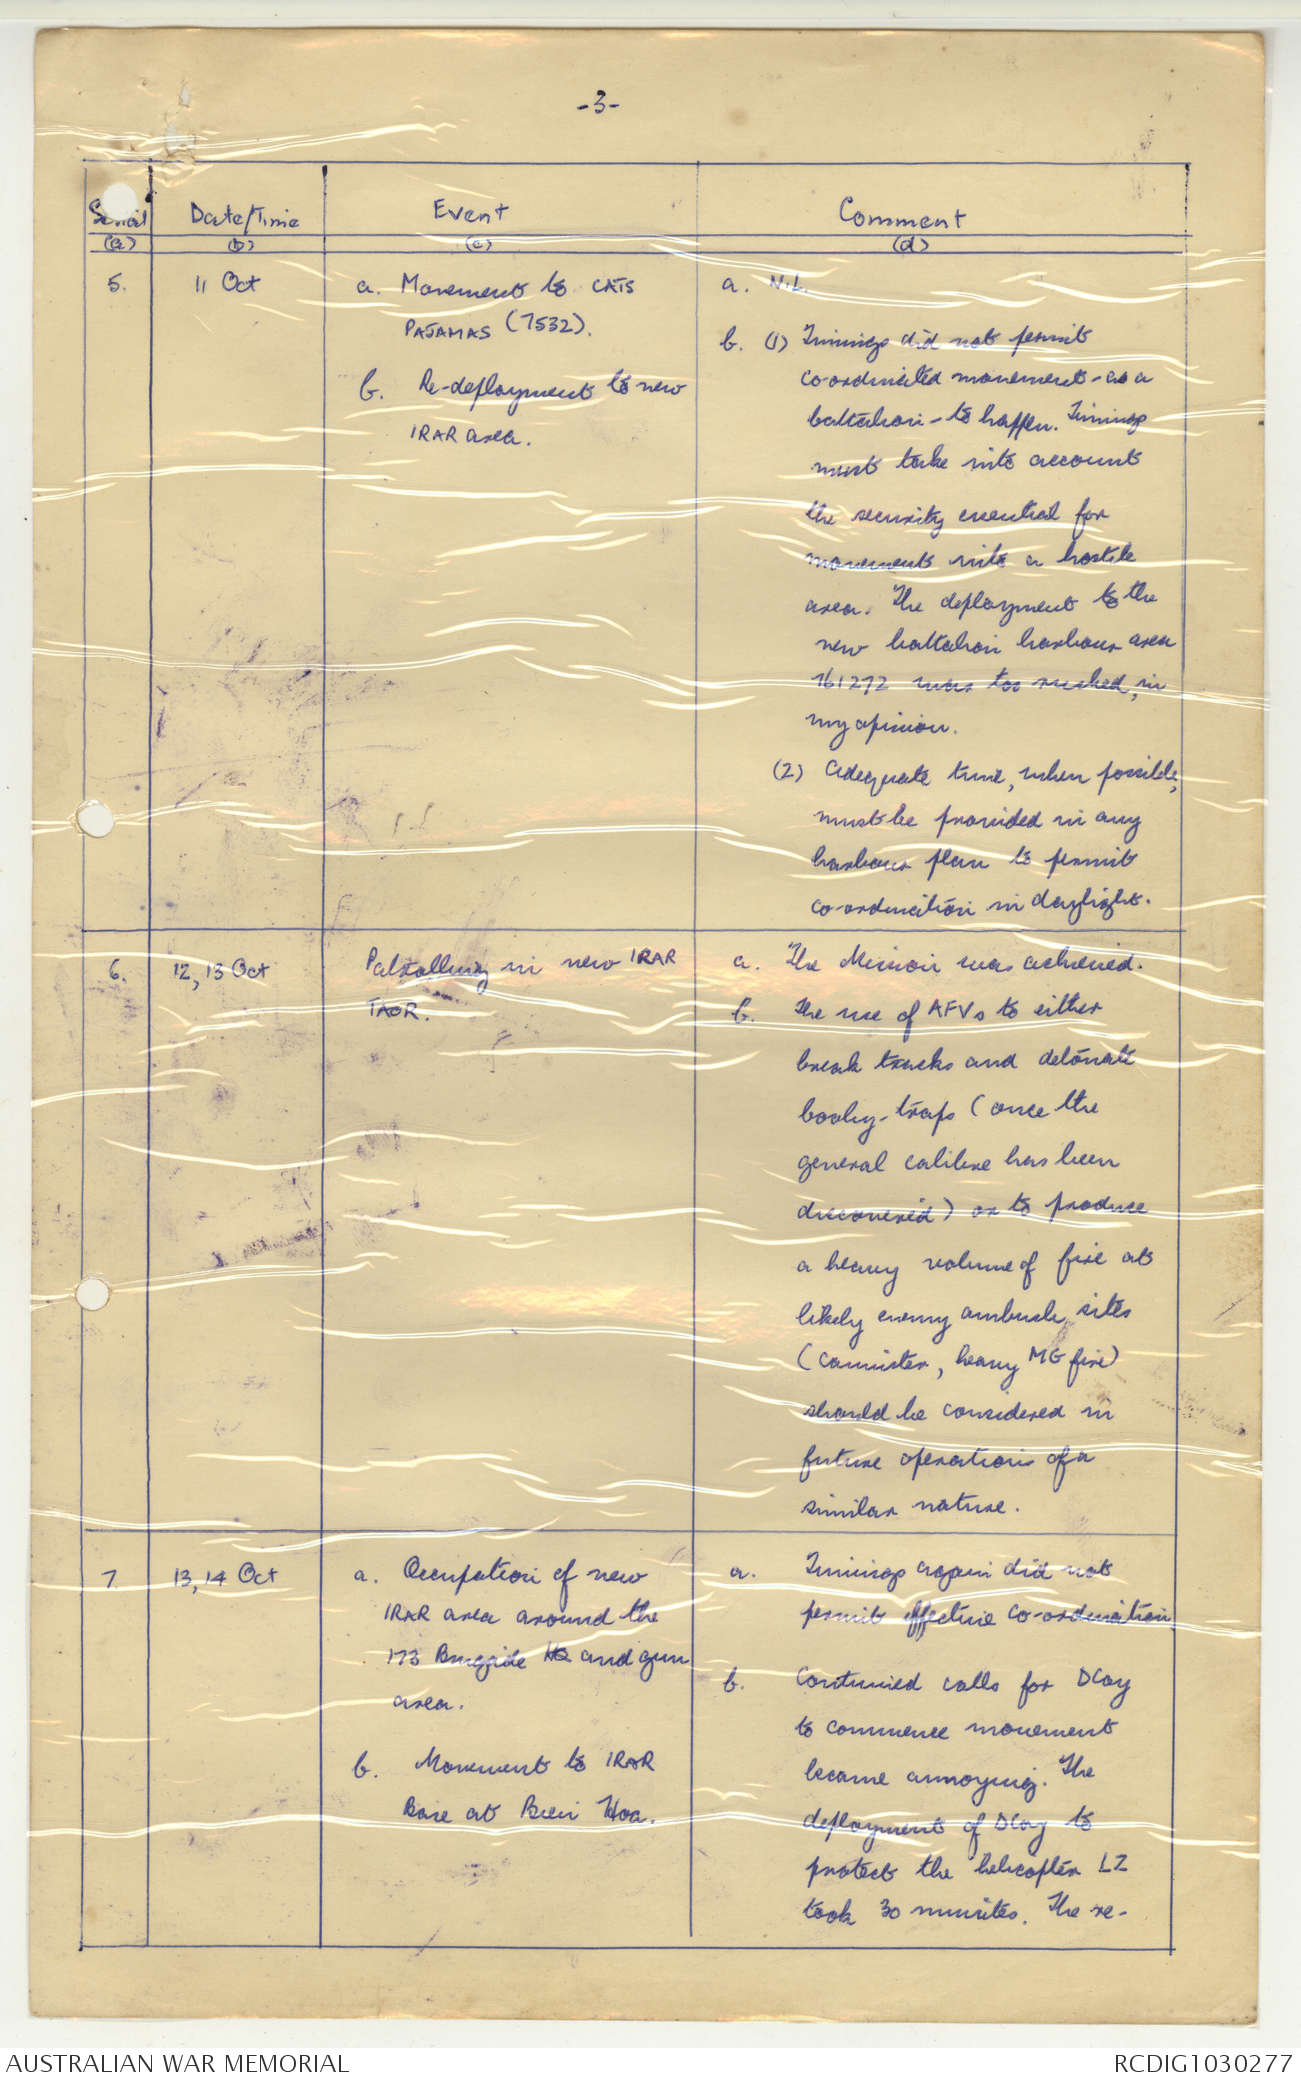 -3-
Serial Date/Time Event Comment
(a) (b) (c) (d)
5. 11 Oct a. Movement to CATS
PAJAMAS (7532).
b. Re-deployment to new
1RAR area.
a. Nil.
b. (1) Timings did not permit
co-ordinated movement - as a
battalion - to happen. Timings
must take into account
the security essential for
movement into a hostile
area. The deployment to the
new battalion harbour area
761272 was too rushed, in
my opinion.
(2) Adequate time, when possible,
must be provided in any
harbour plan to permit
co-ordination in daylight.
6. 12, 13 Oct Patrolling in new 1RAR
TAOR.
a. The Mission was achieved.
b. The use of AFVs to either
break tracks and detonate
booby-traps (once the
general calibre has been
discovered) or to produce
a heavy volume of fire at
likely enemy ambush sites
(cannister, heavy MG fire)
should be considered in
future operations of a
similar nature.
7 13, 14 Oct a. Occupation of new
1RAR area around the
173 Brigade HQ and gun
area.
b. Movement to 1RAR
Base at Bien Hoa.
a. Timings again did not
permit effective co-ordination
b. Continued calls for DCoy
to commence movement
became annoying. The
deployment of DCoy to
protect the helicopter LZ
took 30 minutes. The re-
AUSTRALIAN WAR MEMORIAL RCDIG1030277